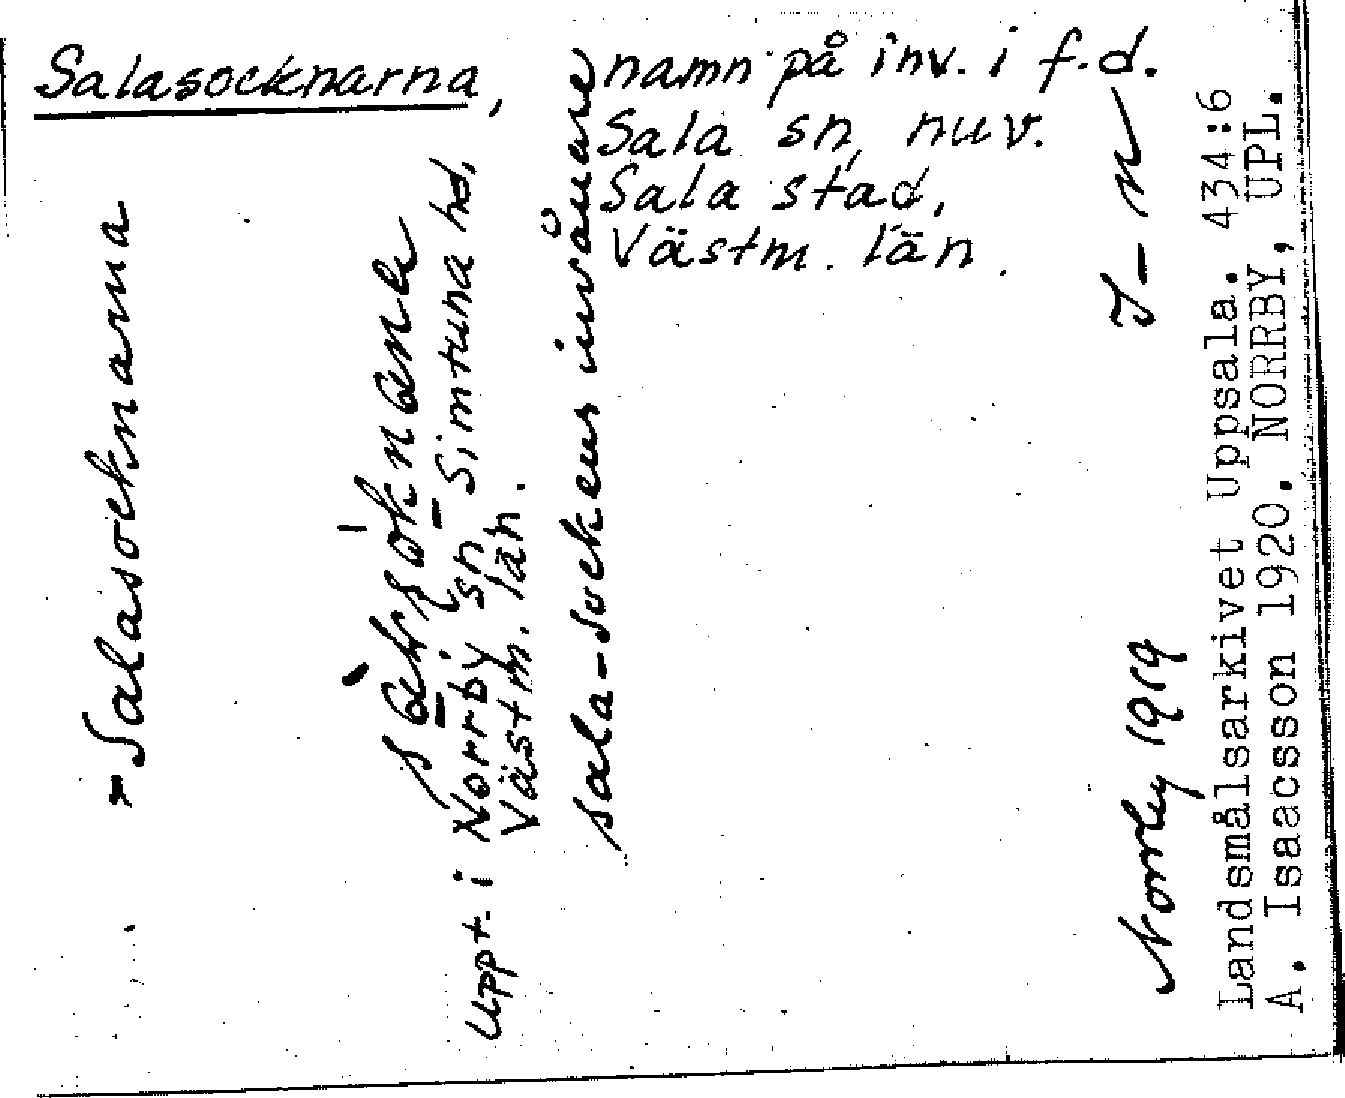 Salasocknarna, namn på inv. i f.d.
Sala sn, nuv.
Sala stad,
Västm. län.
=Salasocknarna
Uppt. i Norrby sn Simtuna hd,
Västm. län.
sala-sockens invånare
Norrby 1919 I-n
Landsmålsarkivet Uppsala. 434:6
A. Isaacsson 1920. NORRBY, UPL.